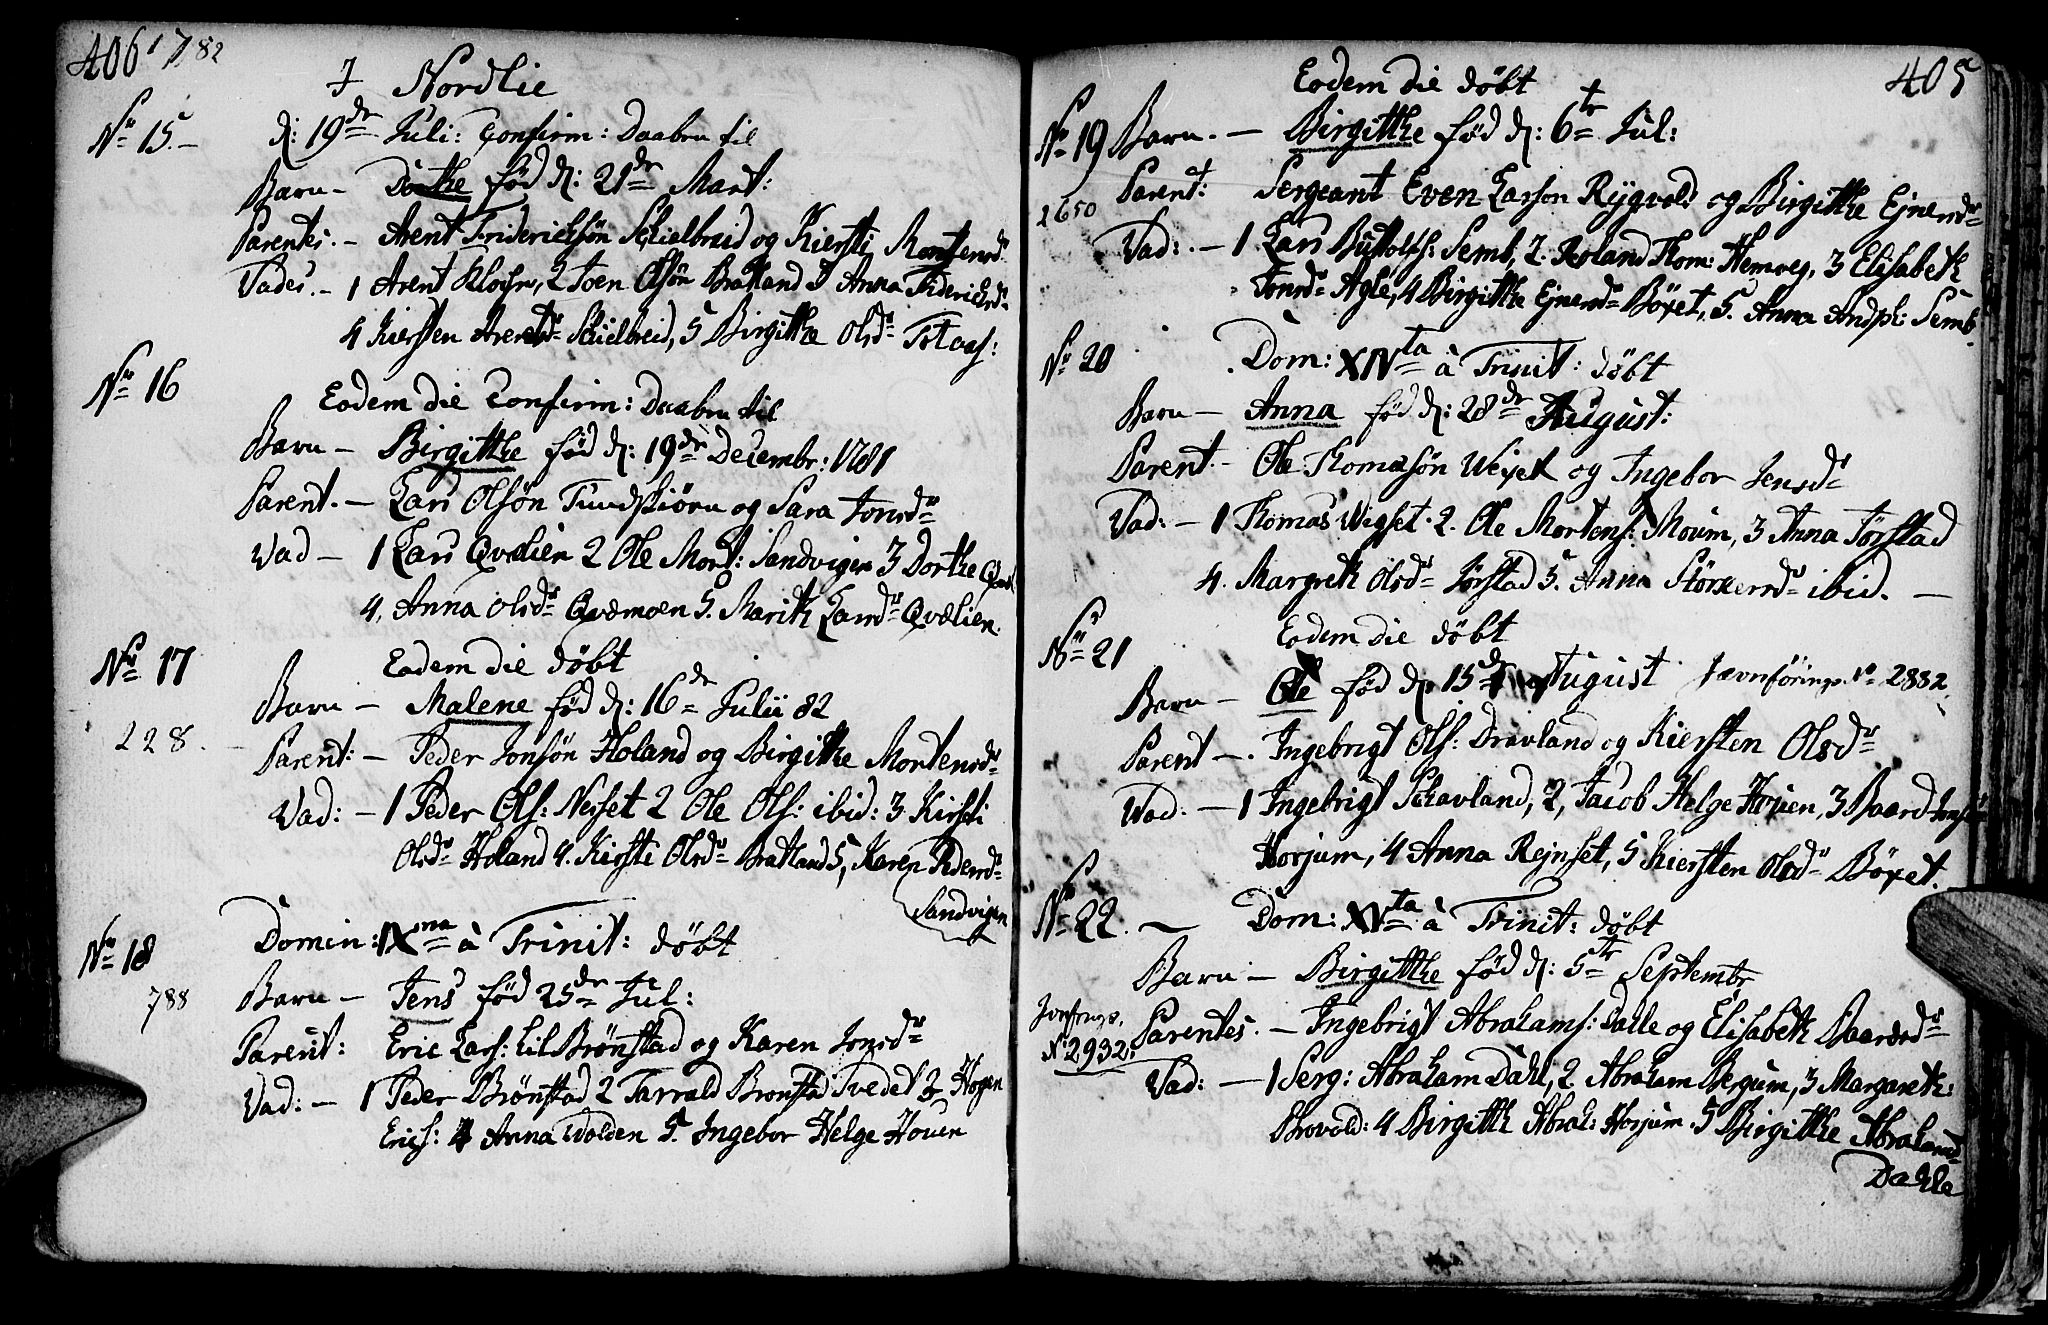 406 1782
I Nordlie
No 15. — d: 19de Juli: Confirm: Daaben til
Barn — Dorthe fød d: 21de Mart:
Parentes. — Arent Friderichsøn Skielbreid og Kiersti Mortensdr
Fades. — 1 Arent Kloshr, 2 Joen Olsøn Bratland 3 Anna Fiderichsdr
4 Kiersten Arentsdr Skielbreid, 5 Birgitha Olsdr Totaas:
No 16
Eodem die Confirm: Daaben til
Barn — Birgitthe fød d: 19de Decembr: 1781
Parent. — Lars Olsøn Tundskiørn og Sara Jonsdr
Vad — 1 Lars Qvelien 2 Ole Mort: Sandvigen 3 Dorthe
4, Anna Olsdr Qvemoen 5. Marith Larsdr Qvelien.
No 17
Eodem die døbt
Barn — Malene fød d: 16de Julii 82
228. Parent: — Peder Jonsøn Holand og Birgitthe Mortensdr
Vad: — 1 Peder Ols: Nesset 2 Ole Ols: ibid: 3 Kirsti
Olsdr Holand 4. Kirsti Olsdr Bratland 5, Karen Pedersdr
Sandvigen
No 18
Domin: IXna à Trinit: døbt
788 Barn — Jens fød 25de Jul:
Parent: Eric Lars: Lil Brønstad og Karen Jonsdr
Vad: — 1 Peder Brønstad 2 Tarrald Brønstad Tvedet 3 Hogen
Erics: 4 Anna Wolden 5. Ingebor Helge Houen
405
Eodem die døbt
No 19 Barn. — Birgitthe fød d: 6te Jul:
2650 Parent: Sergeant Even Larson Rygvold og Birgitthe Ejnersdr
Vad: — 1 Lars Buttolfs: Semb, 2. Roland Thom: Hemveg, 3 Elisabeth
Jonsdr Agle, 4 Birgitthe Ejnersdr Bøxet, 5. Anna Andph: Semb.
No 20
Dom: XIVta à Trinit: døbt
Barn — Anna fød d: 28de August:
Parent. — Ole Thomasøn Wexet og Ingebor Jensdr
Vad: — 1 Thomas Wegset. 2. Ole Mortens: Moum, 3 Anna Jørstad
4. Margreth Olsdr Jørstad 5. Anna Størkersdr ibid. —
No 21
Eodem die døbt
Barn — Ole fød d: 15de August Jævnførings No 2882
Parent — . Ingebrigt Ols: Dravland og Kiersten Olsdr
Vad: — 1 Ingebrigt Schavland, 2, Jacob Helge Houen, 3 Baard
Horjum, 4 Anna Rejnset, 5 Kiersten Olsdr Bøxet.
No 22. — Dom: XVta à Trinit: døbt
Barn — Birgitthe fød d: 5te Septembr
Jvnfrngs. No 2932: Parentes. — Ingebrigt Abrahams: Dalle og Elisabeth Baardsdr
Vad: — 1 Serg: Abraham Dahl, 2 Abraham Bergum, 3 Margareth:
Brovold: 4 Birgitth Abrah: Horjum. 5 Birgitthe Abrahamsdr
Dahle